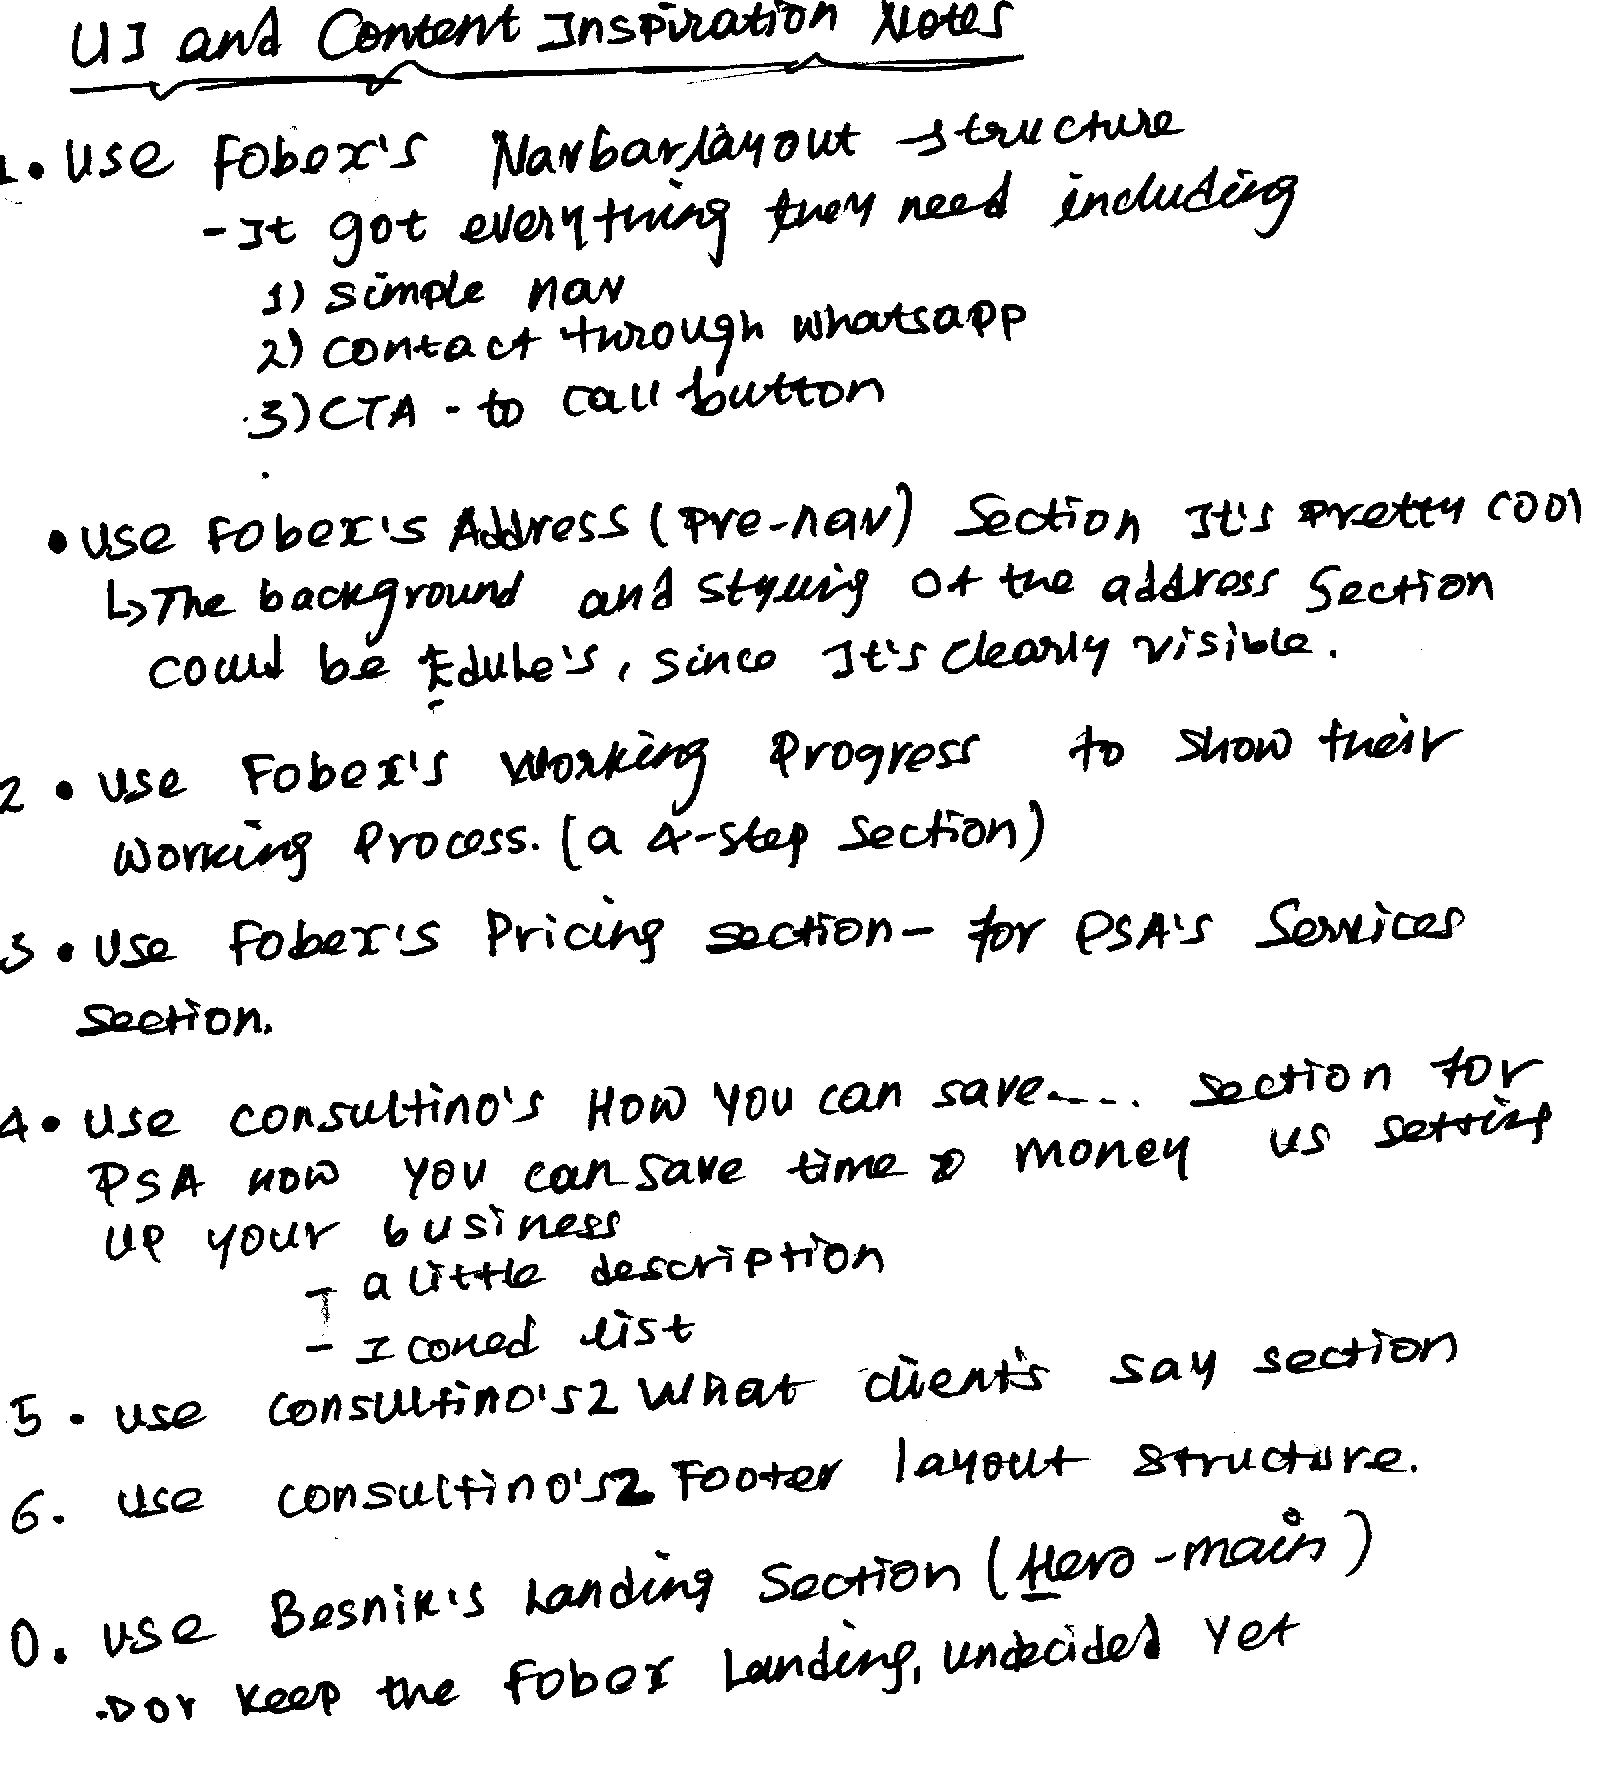 UI and Content Inspiration Notes
1. Use Fobex's Navbar layout structure
- It got everything they need including
1) simple nav
2) contact through whatsapp
3) CTA - to call button
• Use Fobex's Address (Pre-nav) Section It's pretty cool
↳ The background and styling of the address Section
could be Edube's, since It's clearly visible.
2 • Use Fobex's Working Progress to show their
Working Process. (a 4-step section)
3 • Use Fobex's Pricing section - for PSA's Services
section.
4 • Use consultino's How you can save.... section for
PSA How you can save time & money us setting
up your business
- a little description
- Iconed list
5 • use consultino's2 What client's say section
6. use consultino's2 Footer layout structure.
0. use Besnik's Landing Section (Hero-main)
or keep the fobex Landing, undecided yet